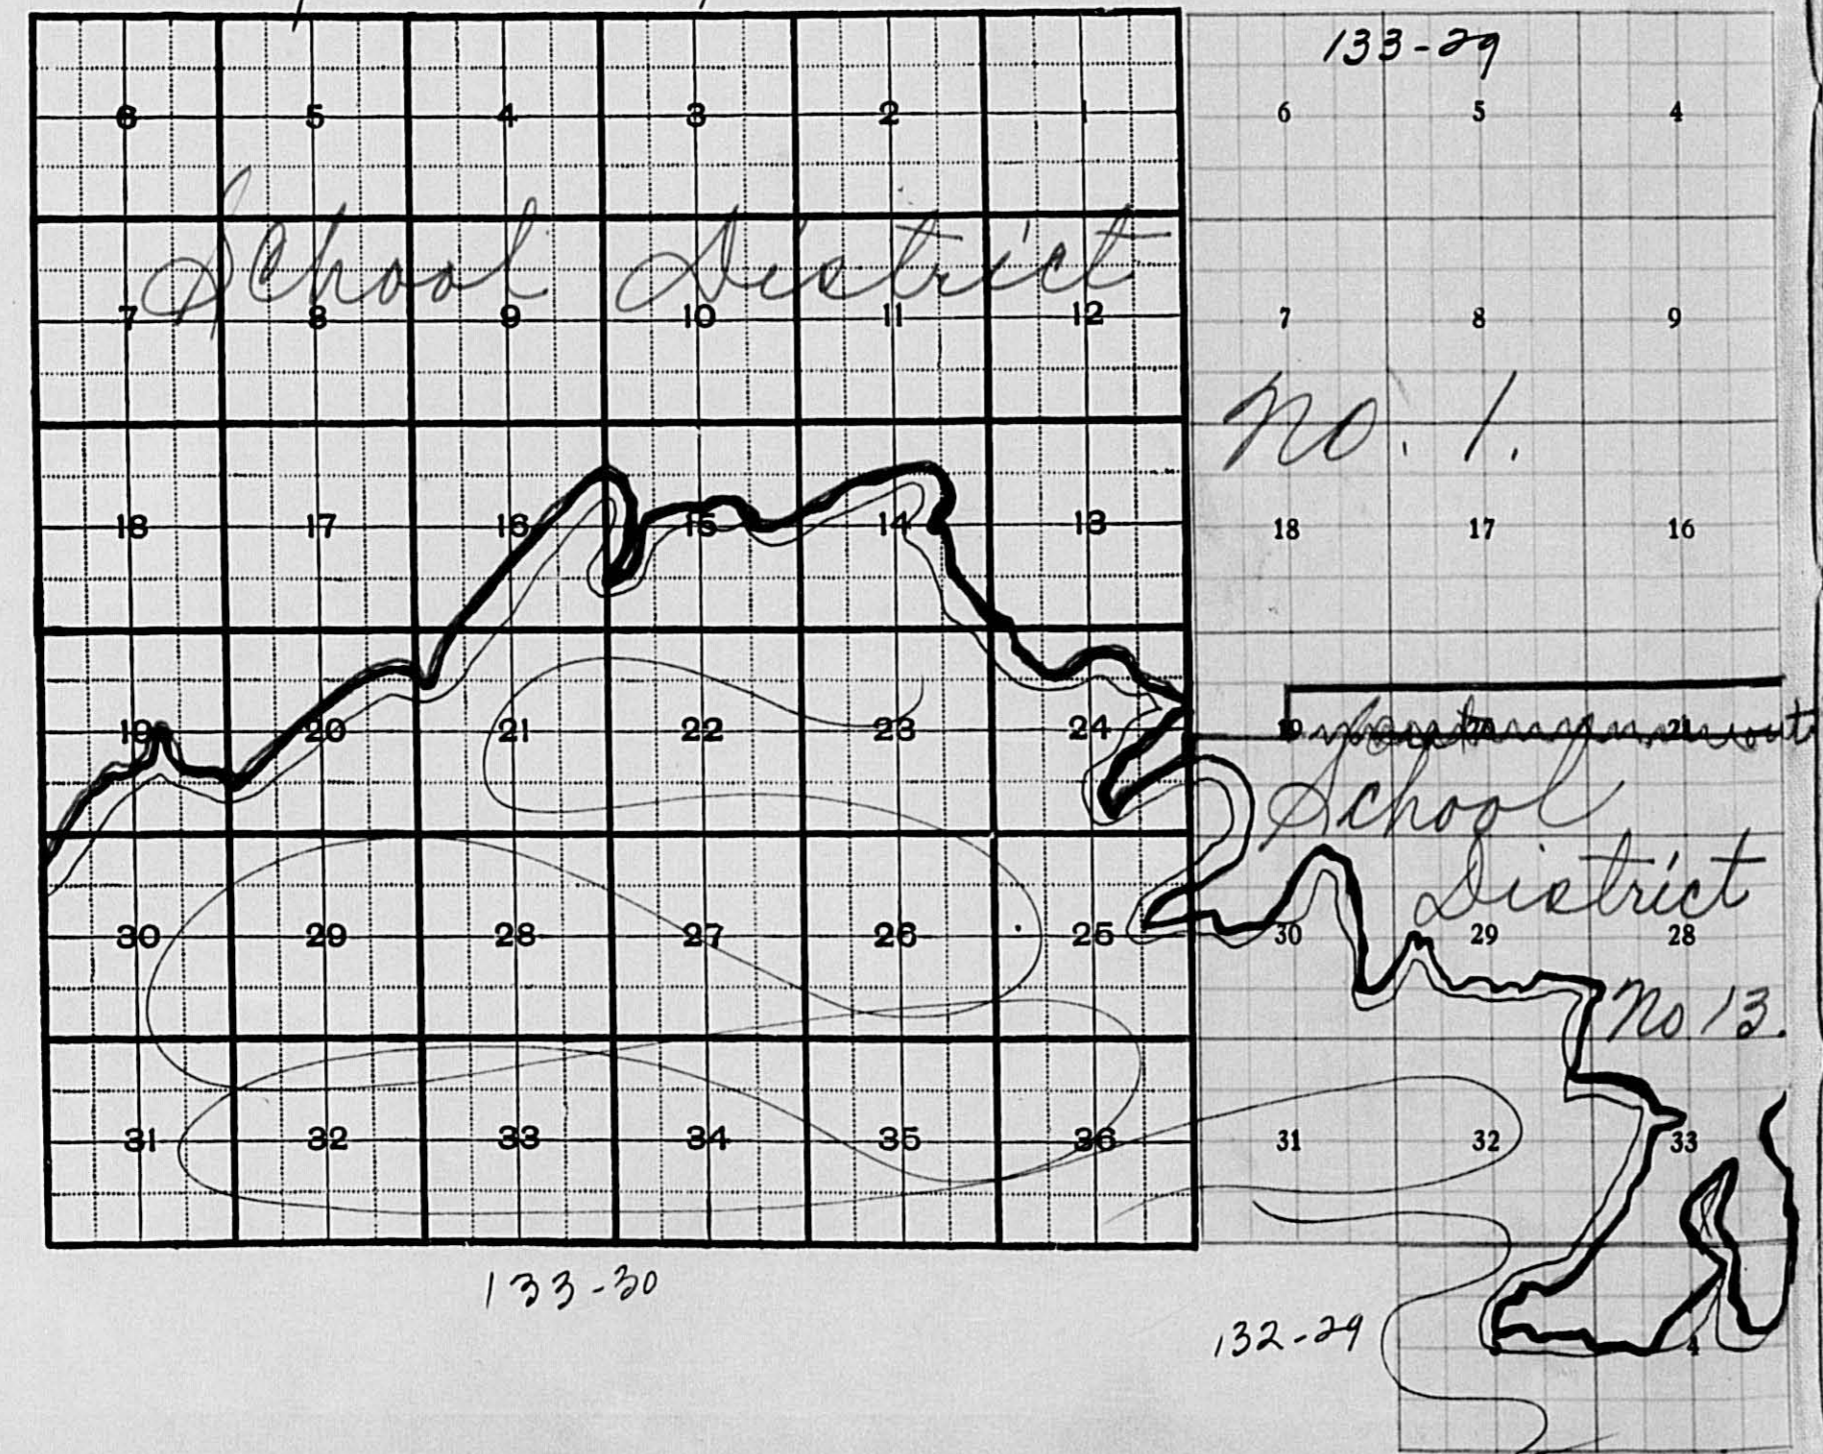 133-29
6 5 4 3 2 1 6 5 4
School District
7 8 9 10 11 12 7 8 9
No. 1.
18 17 16 15 14 13 18 17 16
19 20 21 22 23 24 19 20 21
School
District
30 29 28 27 26 25 30 29 28
No 13.
31 32 33 34 35 36 31 32 33
133-30
132-29
4